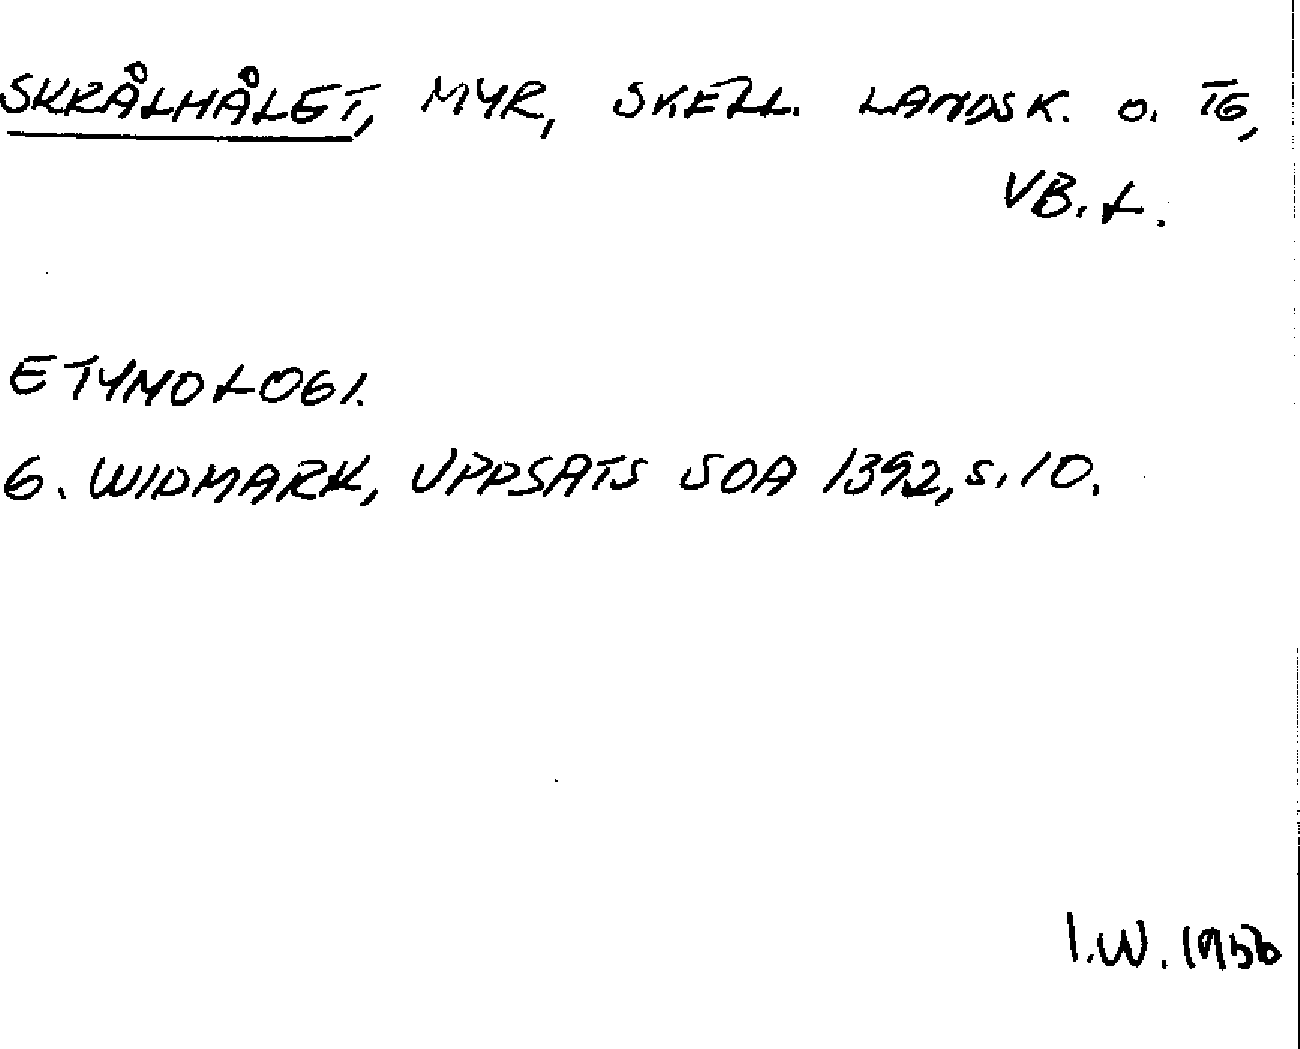 SKRÅLHÅLET, MYR, SKELL. LANDSK. O. TG,
VB. L.
ETYMOLOGI.
G. WIDMARK, UPPSATS SOA 1392, S. 10.
I.W. 1956